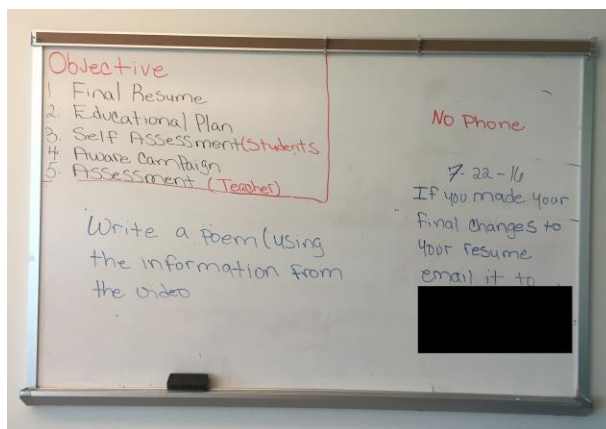 Objective
1 Final Resume
2. Educational Plan
3. Self Assessment (Students
4. Aware Campaign
5. Assessment (Teacher)
Write a poem (using
the information from
the video
No Phone
7-22-16
If you made your
final changes to
your resume
email it to